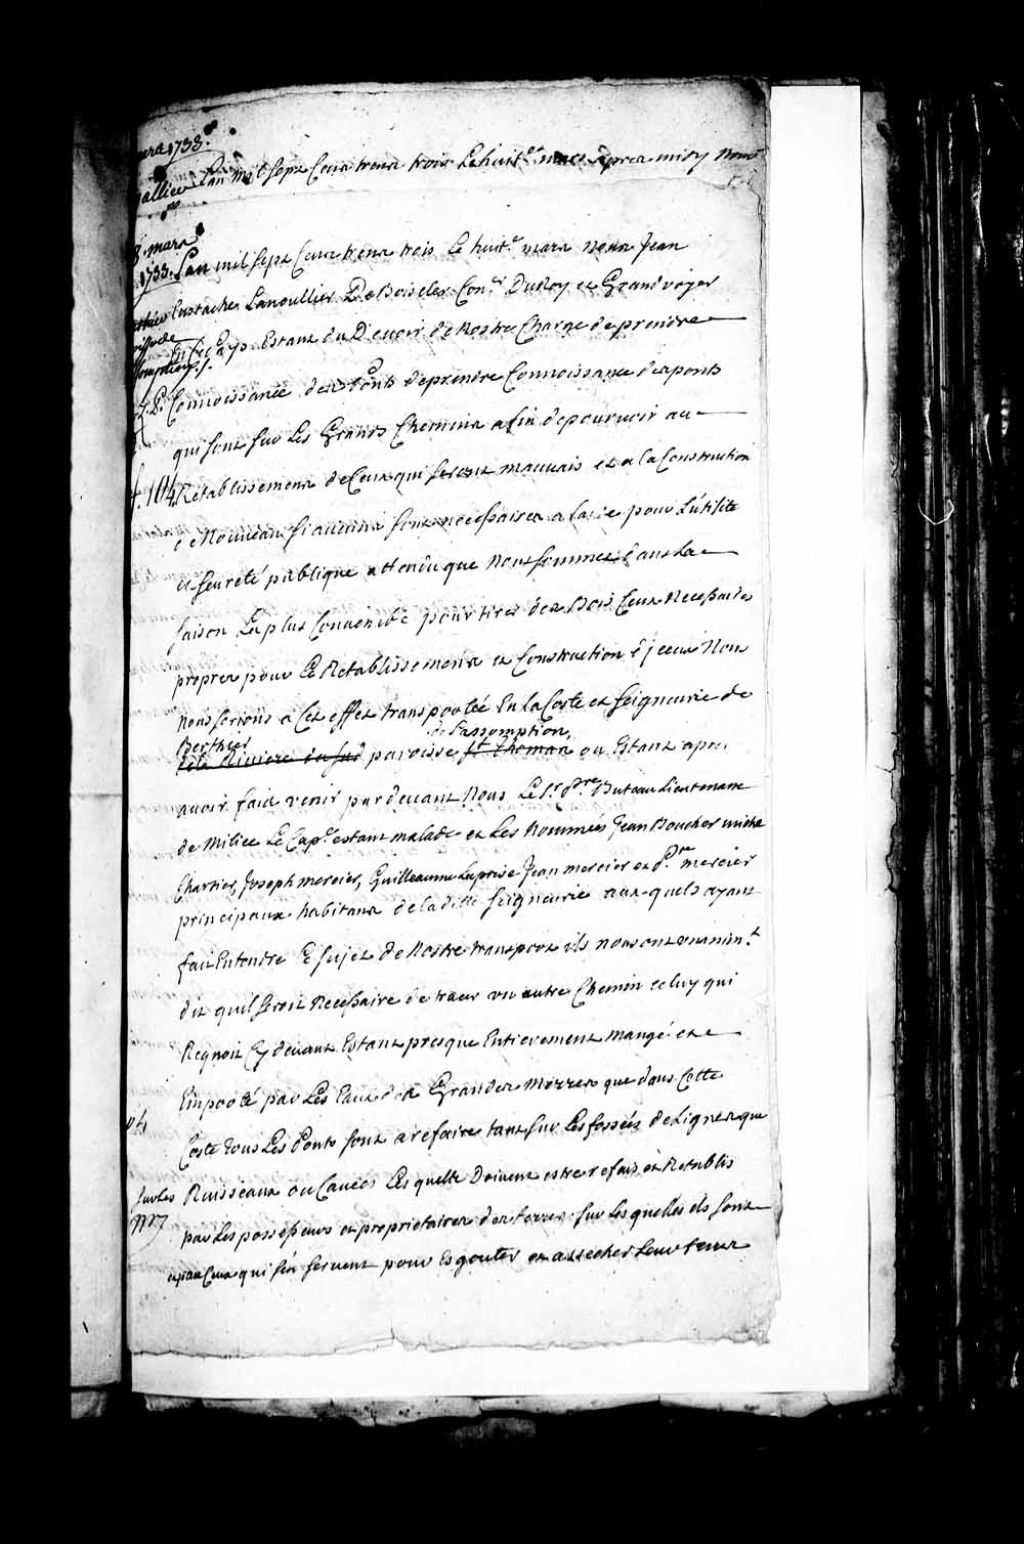 mars 1733.
L'an mil sept Cens trente trois Le huit.e mars apres midy Nous
8. mars
1733. L'an mil sept Cens trente trois le huit.e mars Nous Jean
Eustache Lanoullier De Boisclerc Con.er Du Roy et Grand voyer
En Ce pays Estant du Devoir de Nostre Charge de prendre
Connoissance des Ponts de prendre Connoissance des ponts
qui sont sur Les Grands Chemins afin de pourvoir au
f. 104. Retablissement de Ceux qui seront mauvais et a la Construction
de Nouveaux si aucuns sont necessaires a faire pour L'utilité
et seureté publique attendu que Nous sommes dans La
saison La plus Convenable pour tirer des Bois Ceux Necessaires
propres pour Le Retablissement et Construction d'jceux Nous
nous serions a Cet effet transporté En la Coste et seigneurie de
Berthier de L'assomption,
de la Riviere du sud paroisse st Thomas ou Estant apres
avoir faid venir par devant Nous Le Sr. pre. Buteau Lieutenant
de Milice Le Cap.e estant malade et Les Nommées Jean Boucher miche
Chartier, Joseph mercier, Guillaume Laprise Jean mercier et p.re mercier
principaux habitans de la ditte seigneurie aux quels ayant
fait Entendre Le sujet de Nostre transport ils nous ont unanim.t
dit quil seroit Necessaire de tracer un autre Chemin celuy qui
Regnoit Cy devant Estant presque Entierement mangé et
Emporté par Les Eaux des Grandes Merrees que dans Cette
Coste tous Les Ponts sont a refaire tant sur Les fossées de Lignes que
sur Les Ruisseaux ou Cavées Les quells Doivent estre refais et Retablis
par Les possesseurs et proprietaires des terres sur Les quelles ils sont
et par Ceux qui s'en servent pour Esgouter et assecher Leurs terres